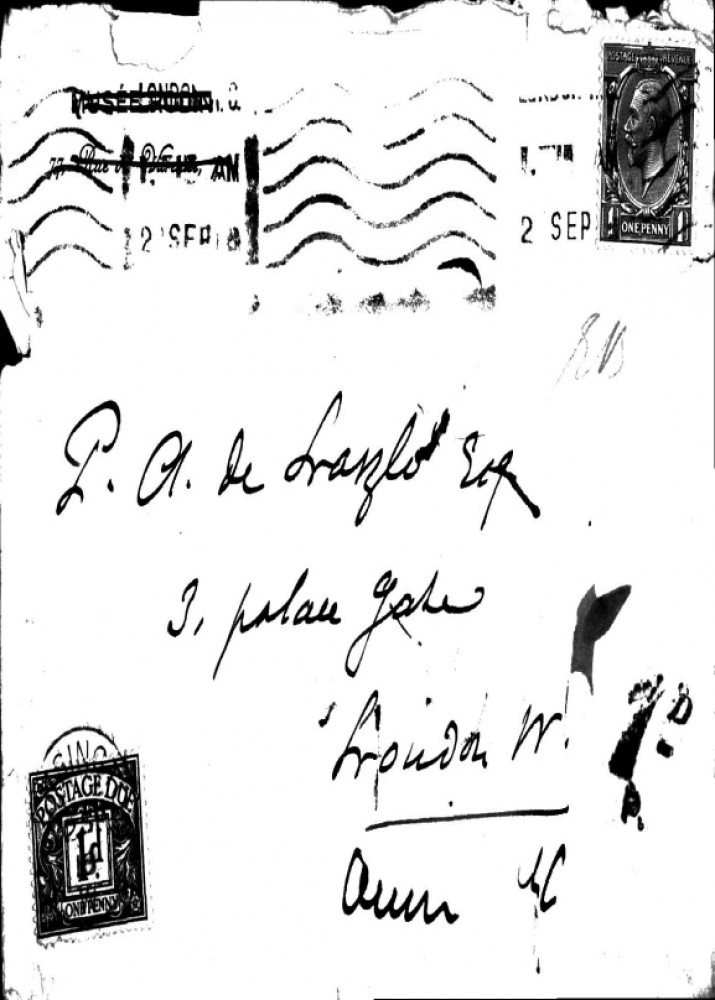 MUSÉE LONDON
77, Rue de Varenne, AM
2 SEP
2 SEP
POSTAGE REVENUE
ONE PENNY
P. A. de Laszló Esq
3, palace Gate
London W.
POSTAGE DUE
1d
ONE PENNY